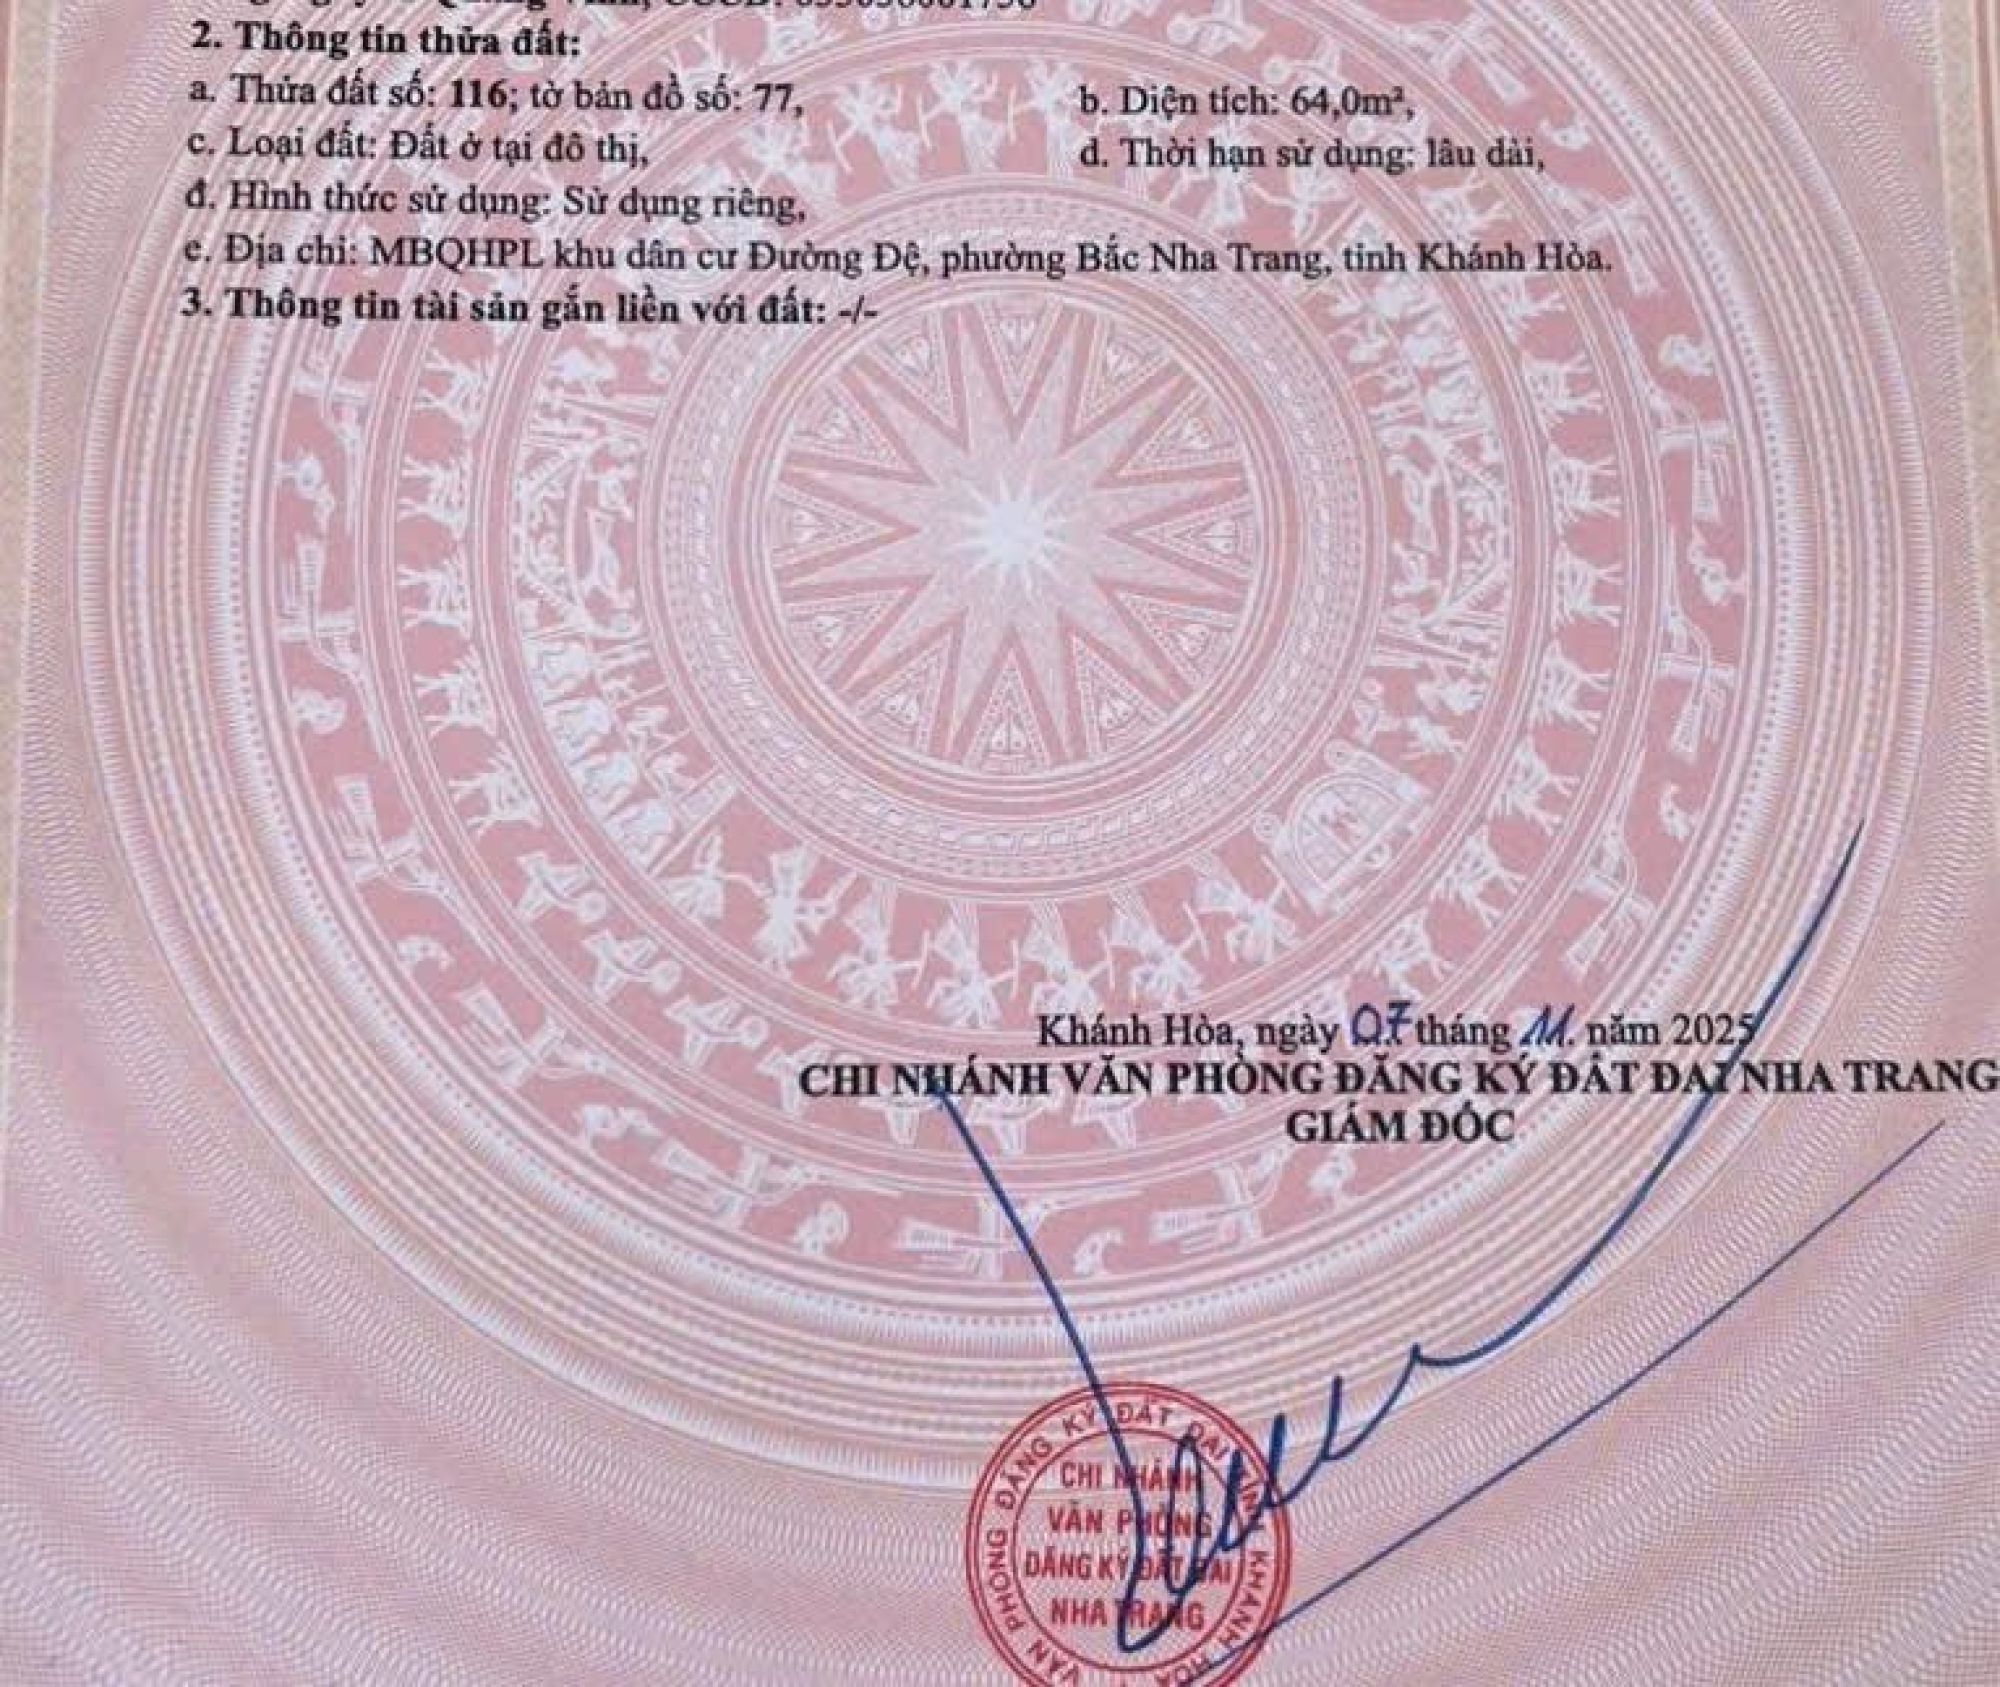 2. Thông tin thửa đất:
a. Thửa đất số: 116; tờ bản đồ số: 77,
b. Diện tích: 64,0m²,
c. Loại đất: Đất ở tại đô thị,
d. Thời hạn sử dụng: lâu dài,
đ. Hình thức sử dụng: Sử dụng riêng,
e. Địa chỉ: MBQHPL khu dân cư Đường Đệ, phường Bắc Nha Trang, tỉnh Khánh Hòa.
3. Thông tin tài sản gắn liền với đất: -/-
Khánh Hòa, ngày 07 tháng 11. năm 2025
CHI NHÁNH VĂN PHÒNG ĐĂNG KÝ ĐẤT ĐAI NHA TRANG
GIÁM ĐỐC
VĂN PHÒNG ĐĂNG KÝ ĐẤT ĐAI TỈNH KHÁNH HÒA
CHI NHÁNH
VĂN PHÒNG
ĐĂNG KÝ ĐẤT ĐAI
NHA TRANG